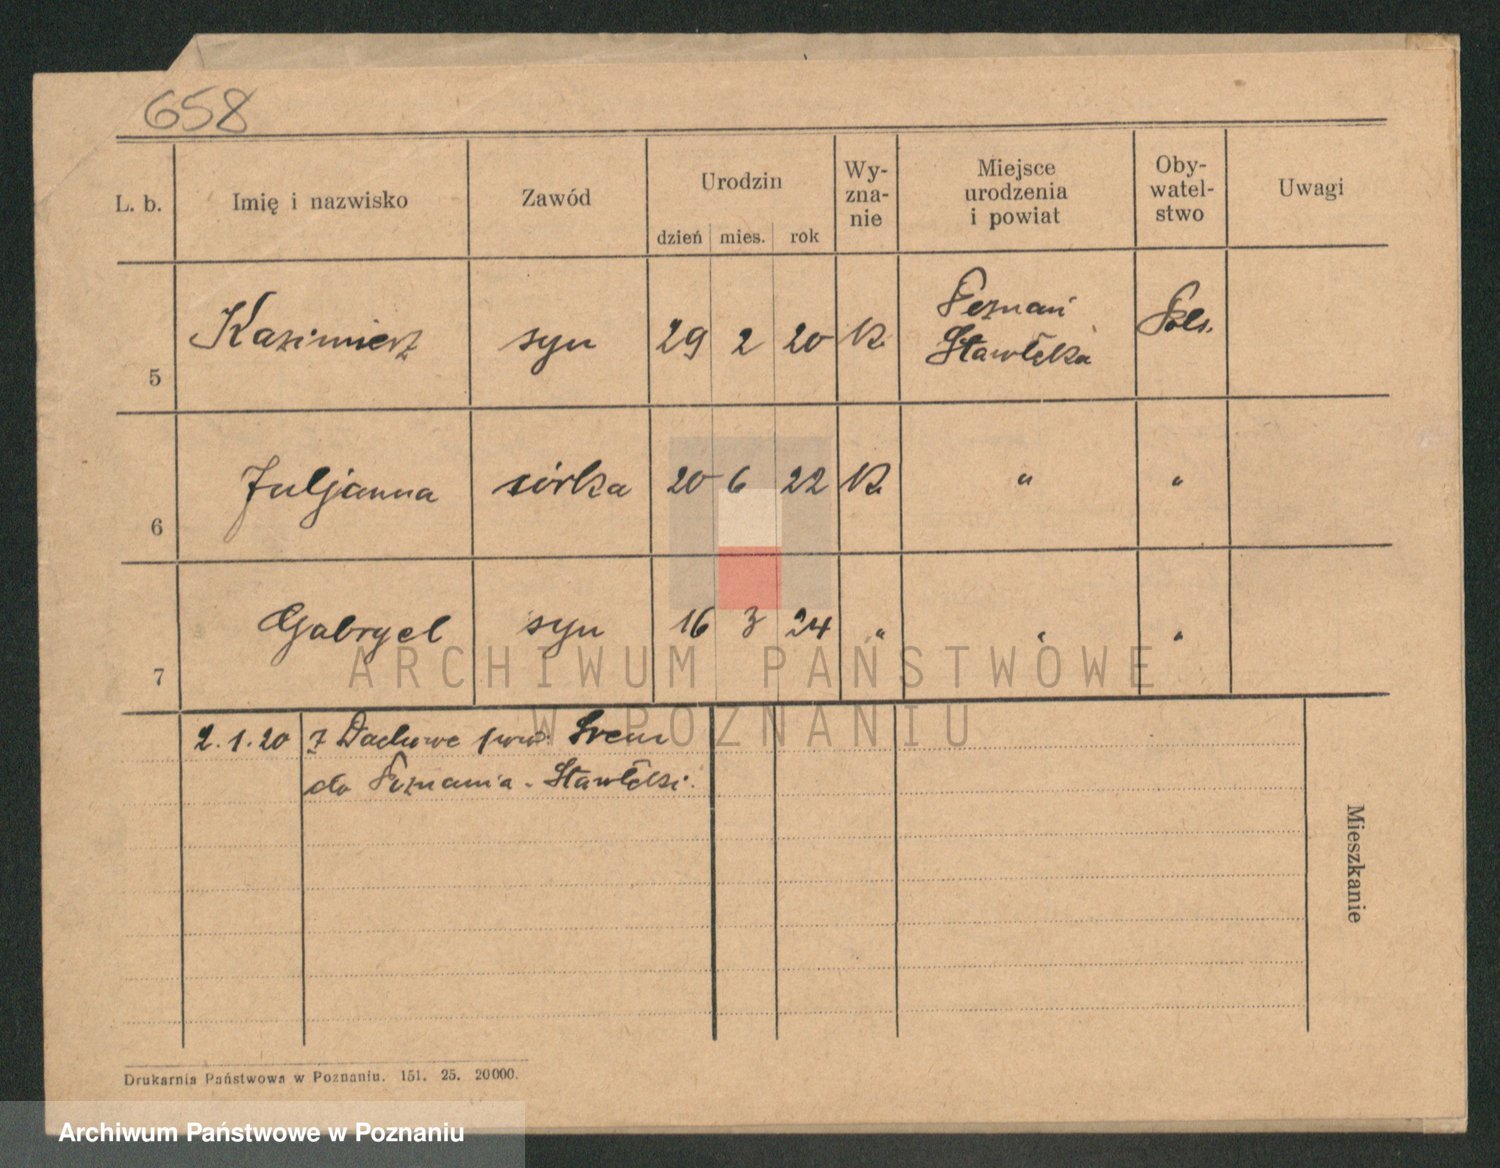 658
L. b. Imię i nazwisko Zawód Urodzin Wy-zna-nie Miejsce urodzenia i powiat Oby-watel-stwo Uwagi
dzień mies. rok
5 Kazimierz syn 29 2 20 K. Poznań Stawłęka Pols.
6 Juljanna córka 20 6 22 K. " "
7 Gabryel syn 16 3 24 " " "
2.1.20 z Dachowe pow. Śrem
do Poznania-Stawłęki.
Mieszkanie
Drukarnia Państwowa w Poznaniu. 151. 25. 20000.
ARCHIWUM PAŃSTWOWE
W POZNANIU
Archiwum Państwowe w Poznaniu